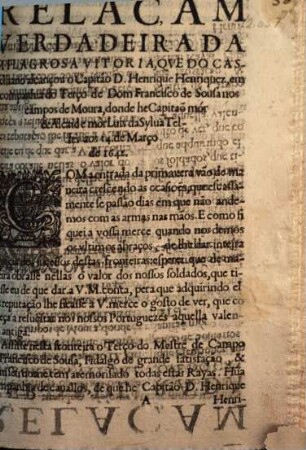 RELAÇAM
VERDADEIRA DA
MILAGROSA VITORIA, QUE DO CAS-
alcançou o Capitão D. Henrique Henriquez, em
companhia do Terço de Dom Francisco de Sousa nos
campos de Moura, donde he Capitaõ mór
& Alcaide mór Luis da Sylua Tel-
les aos 14. de Março
de 1641.
COM a entrada da primauera vão de ma
neira crescendo as ocasiões, que escassa
mente se passaõ dias em que não ande
mos com as armas nas mãos. E como fi
quei a vossa merce quando nos demos
os vltimos abraços, de lhe dar inteira
destas fronteiras; esperei que
obrasse nellas o valor dos nossos soldados, que ti-
esse eu de que dar a V. M. conta, pera que adquirindo el
reputação lhe ficasse a V. merce o gosto de ver, que co
meça a resuscitar nos nossos Portuguezes aquella valen
antiga.
Assiste nesta fronteira o Terço do Mestre de Campo
Francisco de Sousa, Fidalgo de grande satisfaçaõ, &
nome tem atemorisado todas estas Rayas. Hũa
companhia de cauallos, de que he Capitão D. Henrique
A Henri-